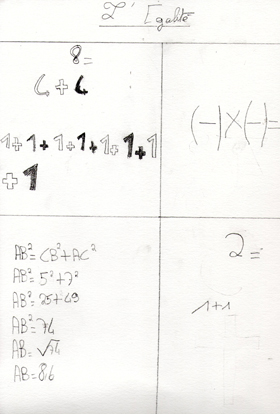 L'Egalité
8=
4+4
1+1+1+1+1+1+1
+1
(-)X(-)=
AB²=CB²+AC²
AB²=5²+7²
AB²=25+49
AB²=74
AB=√74
AB=8.6
2=
1+1